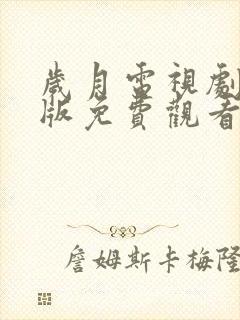 歲月電視劇
版免費觀看
詹姆斯卡梅隆